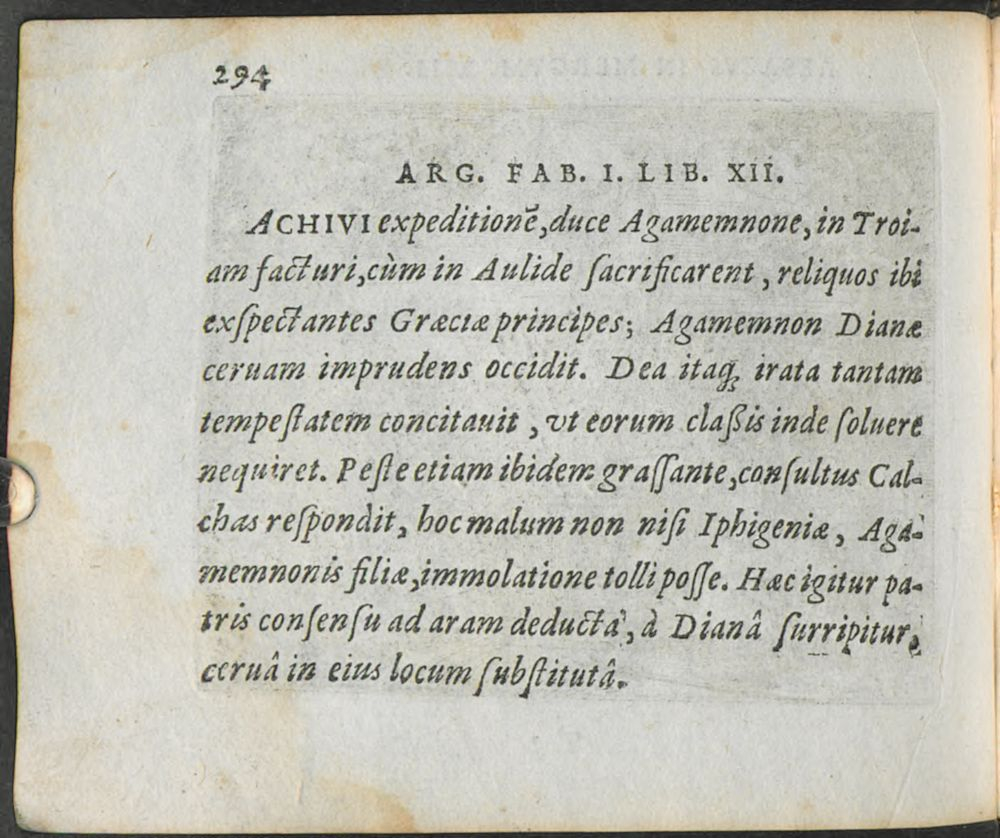 294
ARG. FAB. I. LIB. XII.
ACHIVI expeditionē, duce Agamemnone, in Troi-
am facturi, cùm in Aulide ſacrificarent, reliquos ibi
exſpectantes Græciæ principes; Agamemnon Dianæ
ceruam imprudens occidit. Dea itaq; irata tantam
tempeſtatem concitauit, vt eorum claßis inde ſoluere
nequiret. Peſte etiam ibidem graſſante, conſultus Cal-
chas reſpondit, hoc malum non niſi Iphigeniæ, Aga-
memnonis filiæ, immolatione tolli poſſe. Hæc igitur pa-
tris conſenſu ad aram deducta, à Dianâ ſurripitur,
ceruâ in eius locum ſubſtitutâ.